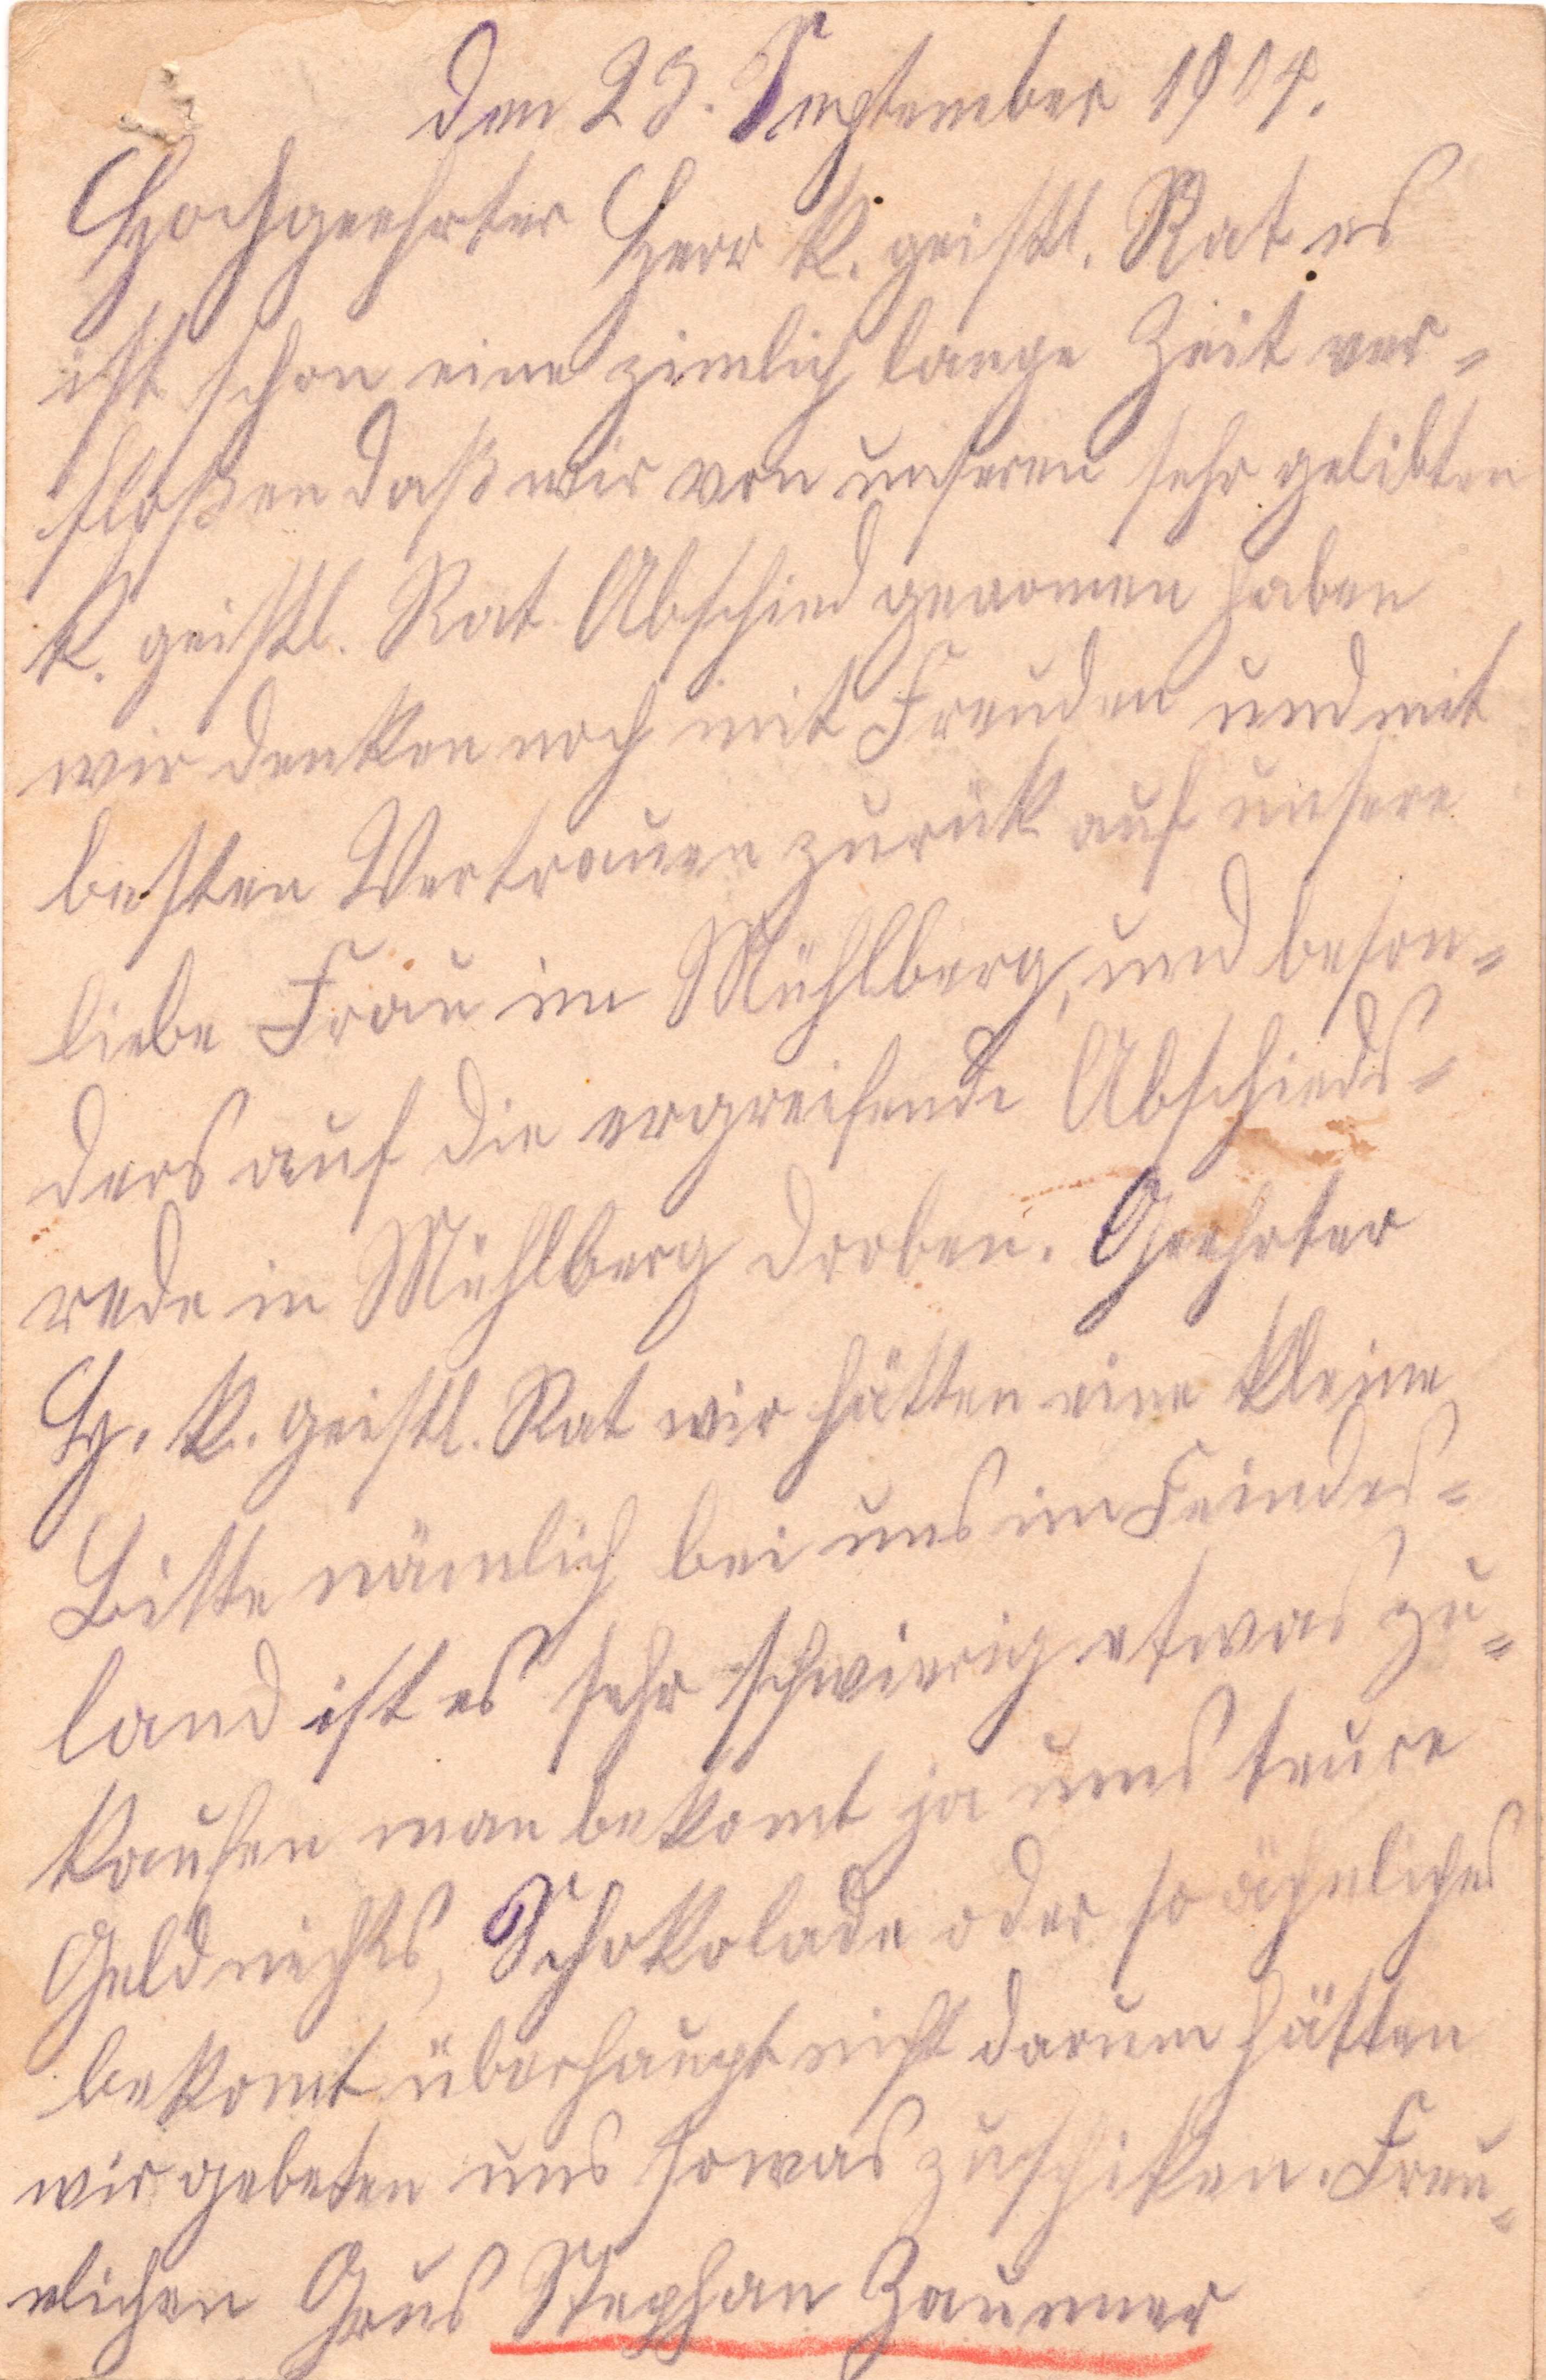 den 23. September 1914.
Hochgeehrter Herr k. geistl. Rat es
ist schon eine zimlich lange Zeit ver-
floßen daß wir von unseren sehr gelibten
k. geistl. Rat Abschied genomen haben
wir denken noch mit Freuden und mit
besten Vertrauen zurük auf unsere
liebe Frau im Mühlberg, und beson-
ders auf die ergreifende Abschieds-
rede in Mühlberg droben. Geehrter
H. k. geistl. Rat wir hätten eine kleine
Bitte nämlich bei uns im Feindes-
land ist es sehr schwierig etwas zu-
kaufen man bekomt ja ums teure
Geld nichts, Schokolade oder so ähnliches
bekomt überhaupt nicht darum hätten
wir gebeten uns sowas zuschiken. Freu-
dlichen Grus Stephan Zaunner